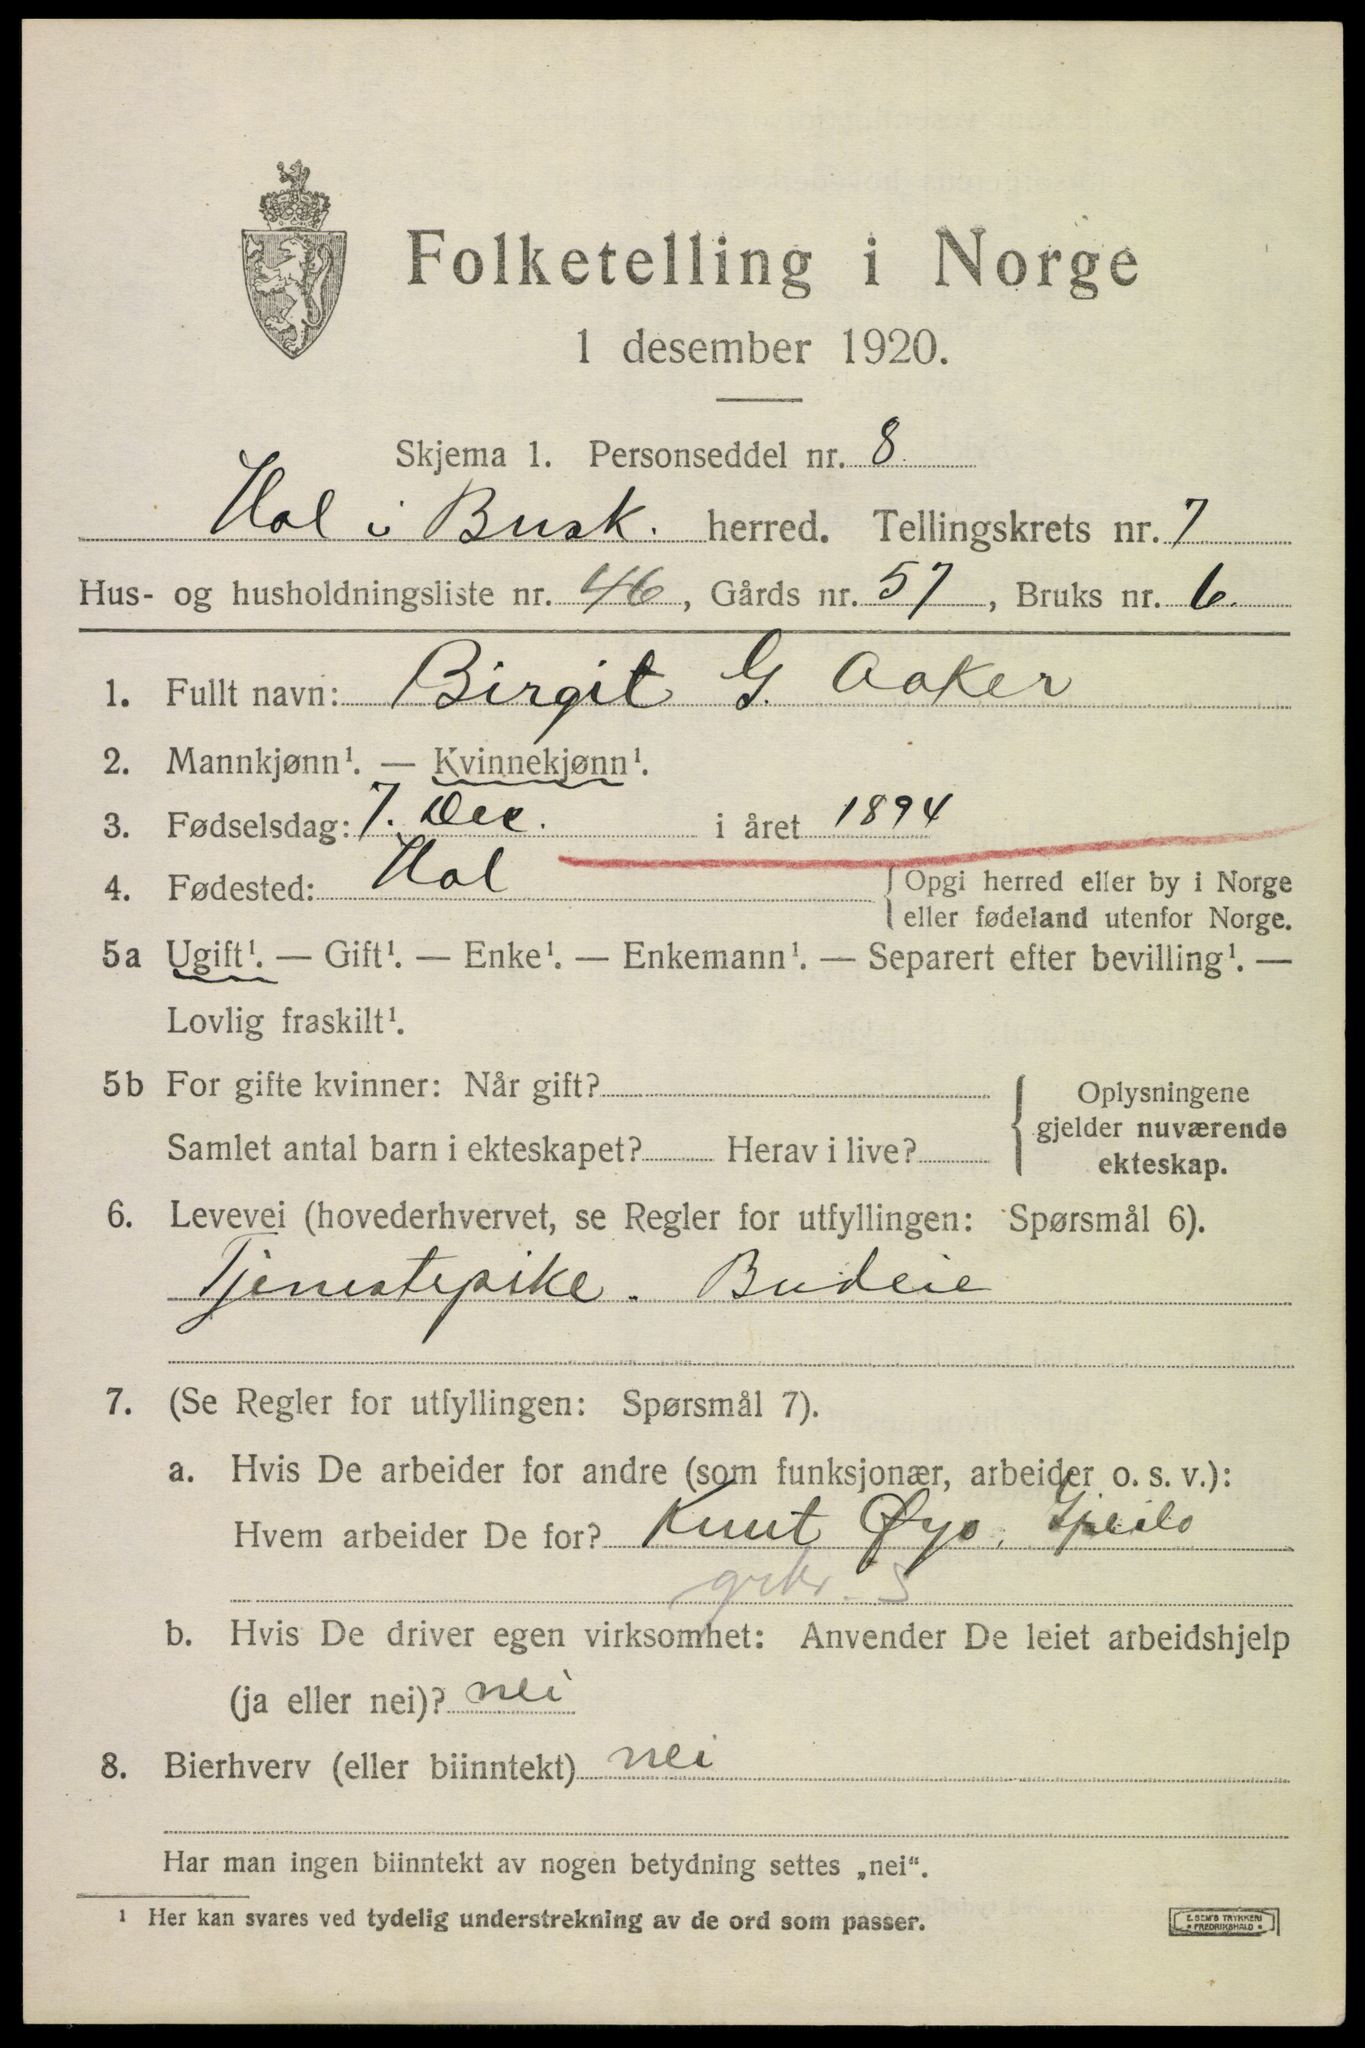 Folketelling i Norge
1 desember 1920.
Skjema 1. Personseddel nr. 8
Hol i Busk. herred. Tellingskrets nr. 7
Hus- og husholdningsliste nr. 46, Gårds nr. 57, Bruks nr. 6.
1. Fullt navn: Birgit G. Aaker
2. Mannkjønn¹. — Kvinnekjønn¹.
3. Fødselsdag: 7. Dec. i året 1894
4. Fødested: Hol {Opgi herred eller by i Norge
eller fødeland utenfor Norge.
5a Ugift¹. — Gift¹. — Enke¹. — Enkemann¹. — Separert efter bevilling¹. —
Lovlig fraskilt¹.
5b For gifte kvinner: Når gift? { Oplysningene
gjelder nuværende
Samlet antal barn i ekteskapet? Herav i live? ekteskap.
6. Levevei (hovederhvervet, se Regler for utfyllingen: Spørsmål 6).
Tjenestepike. Budeie
7. (Se Regler for utfyllingen: Spørsmål 7).
a. Hvis De arbeider for andre (som funksjonær, arbeider o. s. v.):
Hvem arbeider De for? Knut Øyo,
b. Hvis De driver egen virksomhet: Anvender De leiet arbeidshjelp
(ja eller nei)? nei
8. Bierhverv (eller biinntekt) nei
Har man ingen biinntekt av nogen betydning settes „nei“.
¹ Her kan svares ved tydelig understrekning av de ord som passer.
E. SEM'S TRYKKERI
* FREDRIKSHALD *